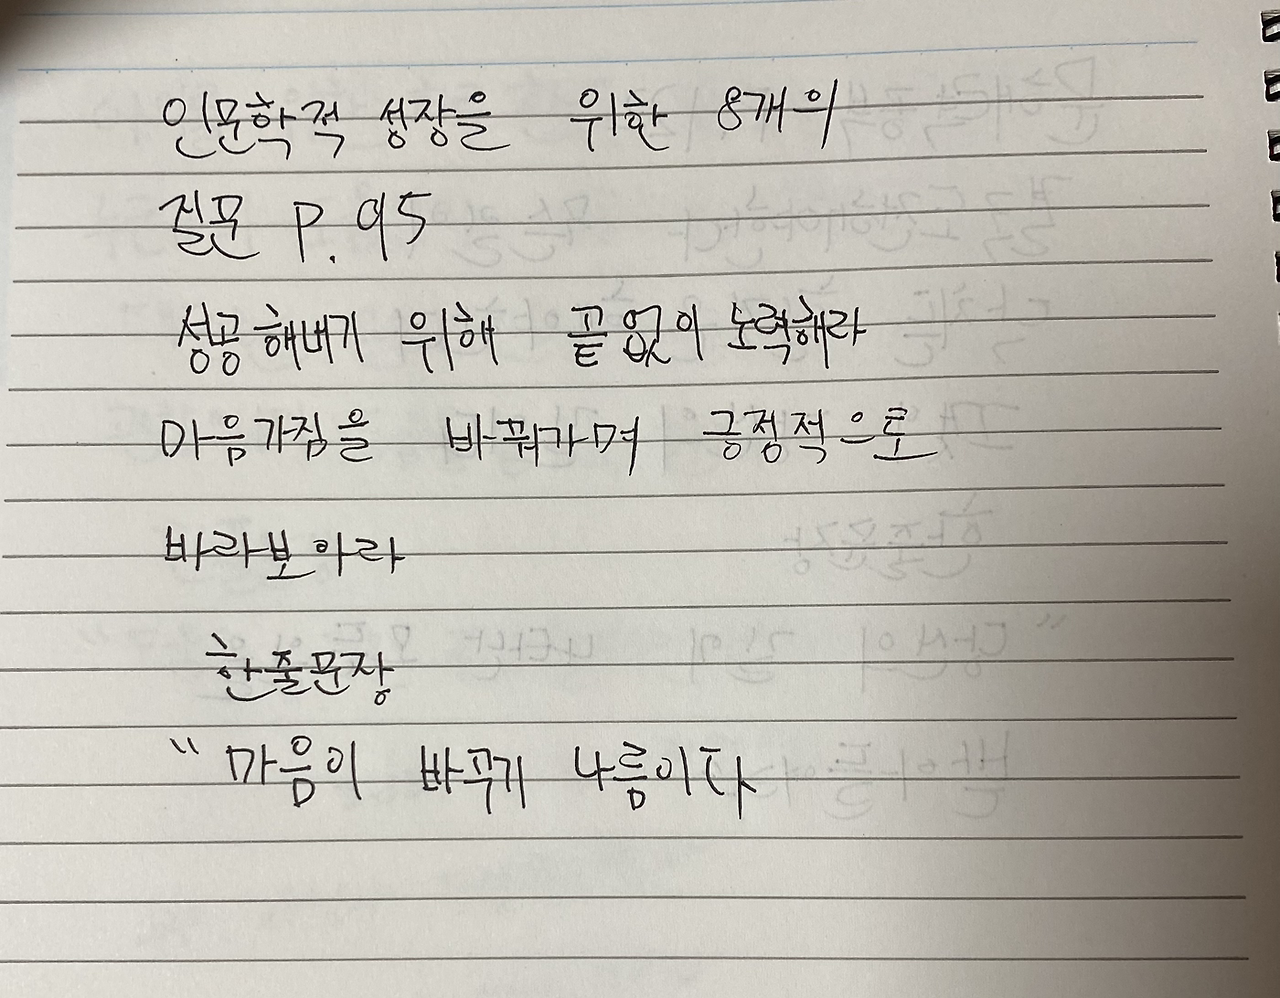 인문학적 성장을 위한 8개의
질문 P. 95
성공해내기 위해 끝없이 노력해라
마음가짐을 바꿔가며 긍정적으로
바라보아라
한줄문장
" 마음이 바꾸기 나름이다